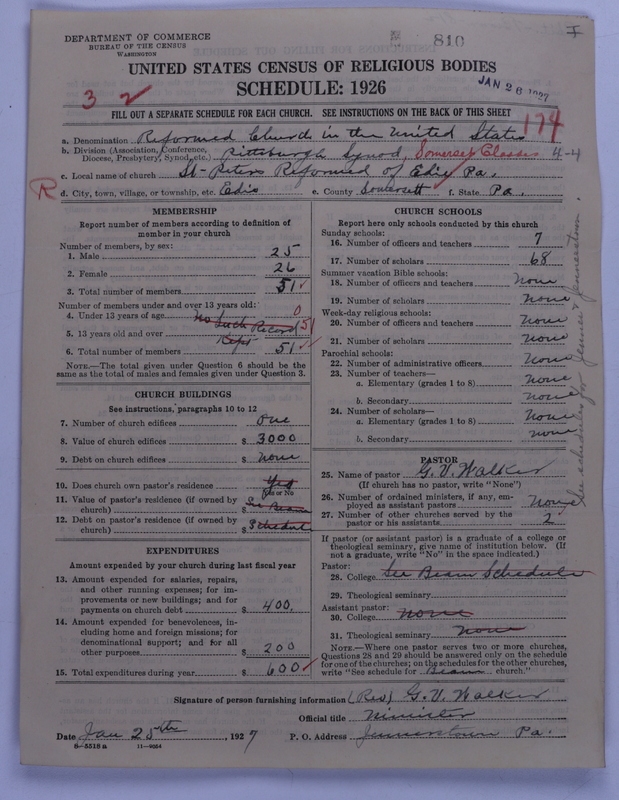 DEPARTMENT OF COMMERCE
BUREAU OF THE CENSUS
WASHINGTON
810
I
UNITED STATES CENSUS OF RELIGIOUS BODIES
SCHEDULE: 1926
JAN 28 1927
3 2
174
FILL OUT A SEPARATE SCHEDULE FOR EACH CHURCH. SEE INSTRUCTIONS ON THE BACK OF THIS SHEET
a. Denomination Reformed Church in the United States
b. Division (Association, Conference, Diocese, Presbytery, Synod, etc.) Pittsburgh Synod, Somerset Classis 4-4
c. Local name of church St-Peters Reformed of Edie Pa.
R
d. City, town, village, or township, etc. Edie e. County Somersett f. State Pa.
MEMBERSHIP
Report number of members according to definition of member in your church
Number of members, by sex:
1. Male 25
2. Female 26
3. Total number of members 51
Number of members under and over 13 years old:
4. Under 13 years of age 0
No Such Record
5. 13 years old and over 51
Kept
6. Total number of members 51
NOTE.—The total given under Question 6 should be the same as the total of males and females given under Question 3.
CHURCH BUILDINGS
See instructions, paragraphs 10 to 12
7. Number of church edifices One
8. Value of church edifices $ 3000
9. Debt on church edifices $ None
10. Does church own pastor's residence Yes
Yes or No
11. Value of pastor's residence (if owned by church) $ See Beam
12. Debt on pastor's residence (if owned by church) $ Schedule
EXPENDITURES
Amount expended by your church during last fiscal year
13. Amount expended for salaries, repairs, and other running expenses; for improvements or new buildings; and for payments on church debt $ 400,
14. Amount expended for benevolences, including home and foreign missions; for denominational support; and for all other purposes $ 200
15. Total expenditures during year $ 600
CHURCH SCHOOLS
Report here only schools conducted by this church
Sunday schools:
16. Number of officers and teachers 7
17. Number of scholars 68
Summer vacation Bible schools:
18. Number of officers and teachers None
19. Number of scholars None
Week-day religious schools:
20. Number of officers and teachers None
21. Number of scholars None
Parochial schools:
22. Number of administrative officers None
23. Number of teachers—
a. Elementary (grades 1 to 8) None
b. Secondary None
24. Number of scholars—
a. Elementary (grades 1 to 8) None
b. Secondary None
See schedules for Jenner & Jennerstown.
PASTOR
25. Name of pastor G. V. Walker
(If church has no pastor, write "None")
26. Number of ordained ministers, if any, employed as assistant pastors None
27. Number of other churches served by the pastor or his assistants 2
If pastor (or assistant pastor) is a graduate of a college or theological seminary, give name of institution below. (If not a graduate, write "No" in the space indicated.)
Pastor:
28. College See Beam Schedule
29. Theological seminary
Assistant pastor:
30. College None
31. Theological seminary None
NOTE.—Where one pastor serves two or more churches, Questions 28 and 29 should be answered only on the schedule for one of the churches; on the schedules for the other churches, write "See schedule for Beam church."
Signature of person furnishing information (Rev) G. V. Walker
Official title Minister
Date Jan 25th, 1927 P. O. Address Jennerstown Pa.
8-5518 a 11-9054